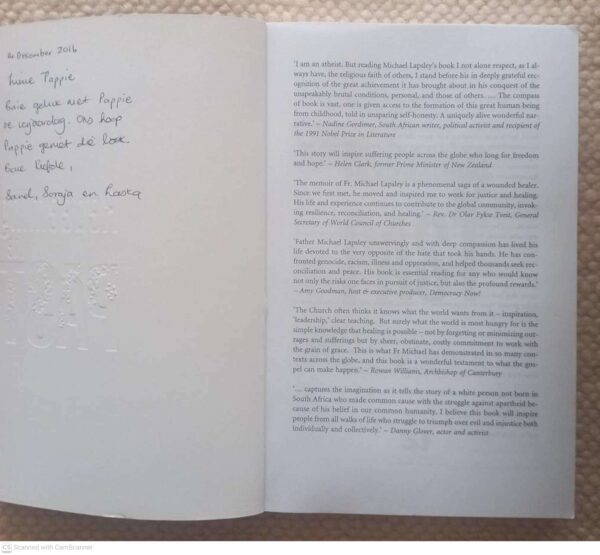 14 Desember 2016
Liewe Pappie
Baie geluk met Pappie
se verjaarsdag. Ons hoop
Pappie geniet dié boek.
Baie liefde,
en
'I am an atheist. But reading Michael Lapsley's book I not alone respect, as I al-
ways have, the religious faith of others, I stand before his in deeply grateful rec-
ognition of the great achievement it has brought about in his conquest of the
unspeakably brutal conditions, personal, and those of others. … The compass
of book is vast, one is given access to the formation of this great human being
from childhood, told in unsparing self-honesty. A uniquely alive wonderful nar-
rative.' – Nadine Gordimer, South African writer, political activist and recipient of
the 1991 Nobel Prize in Literature
'This story will inspire suffering people across the globe who long for freedom
and hope.' – Helen Clark, former Prime Minister of New Zealand
'The memoir of Fr. Michael Lapsley is a phenomenal saga of a wounded healer.
Since we first met, he moved and inspired me to work for justice and healing.
His life and experience continues to contribute to the global community, invok-
ing resilience, reconciliation, and healing.' – Rev. Dr Olav Fykse Tveit, General
Secretary of World Council of Churches
'Father Michael Lapsley unswervingly and with deep compassion has lived his
life devoted to the very opposite of the hate that took his hands. He has con-
fronted genocide, racism, illness and oppression, and helped thousands seek rec-
onciliation and peace. His book is essential reading for any who would know
not only the risks one faces in pursuit of justice, but also the profound rewards.'
– Amy Goodman, host & executive producer, Democracy Now!
'The Church often thinks it knows what the world wants from it – inspiration,
"leadership," clear teaching. But surely what the world is most hungry for is the
simple knowledge that healing is possible – not by forgetting or minimizing out-
rages and sufferings but by sheer, obstinate, costly commitment to work with
the grain of grace. This is what Fr Michael has demonstrated in so many con-
texts across the globe, and this book is a wonderful testament to what the gos-
pel can make happen.' – Rowan Williams, Archbishop of Canterbury
'… captures the imagination as it tells the story of a white person not born in
South Africa who made common cause with the struggle against apartheid be-
cause of his belief in our common humanity. I believe this book will inspire
people from all walks of life who struggle to triumph over evil and injustice both
individually and collectively.' – Danny Glover, actor and activist
CS Scanned with CamScanner